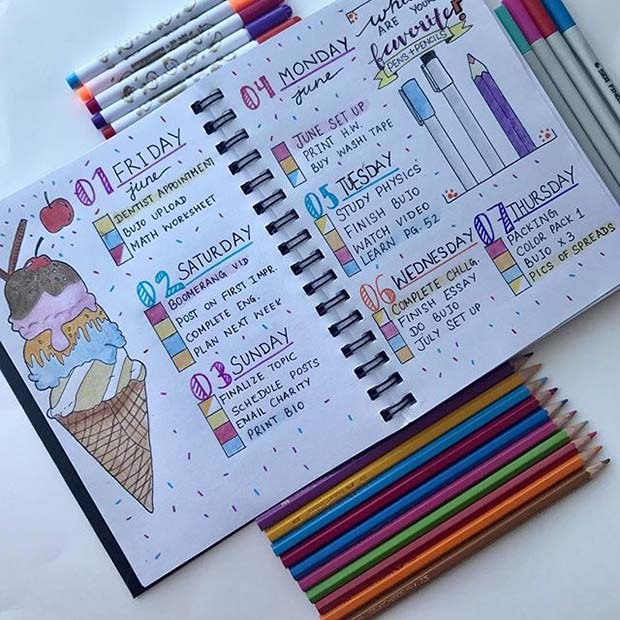 01 FRIDAY
june
DENTIST APPOINTMENT
BUJO UPLOAD
MATH WORKSHEET
02 SATURDAY
BOOMERANG VID
POST ON FIRST IMPR.
COMPLETE ENG.
PLAN NEXT WEEK
03 SUNDAY
FINALIZE TOPIC
SCHEDULE POSTS
EMAIL CHARITY
PRINT BIO
04 MONDAY
june
JUNE SET UP
PRINT H.W.
BUY WASHI TAPE
05 TUESDAY
STUDY PHYSICS
FINISH BUJO
WATCH VIDEO
LEARN PG. 52
06 WEDNESDAY
COMPLETE CHLLG.
FINISH ESSAY
DO BUJO
JULY SET UP
what
ARE YOUR
favorite
PENS+PENCILS?
07 THURSDAY
PACKING
COLOR PACK 1
BUJO X 3
PICS OF SPREADS